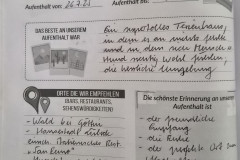 Aufenthalt vom: 26.7.23
Aufenthalt bis:
DAS BESTE AN UNSEREM
AUFENTHALT WAR
Ein supertolles Ferienhaus,
in dem es an nichts fehlte
und in dem sich Mensch +
Hund richtig wohl fühlen,
die herrliche Umgebung
ORTE DIE WIR EMPFEHLEN
(BARS, RESTAURANTS,
SEHENSWÜRDIGKEITEN)
- Wald bei
- Hansestadt Lübeck
Rest.
Die schönste Erinnerung an unseren
Aufenthalt ist
- der freundliche
Empfang
- die Ruhe
- der